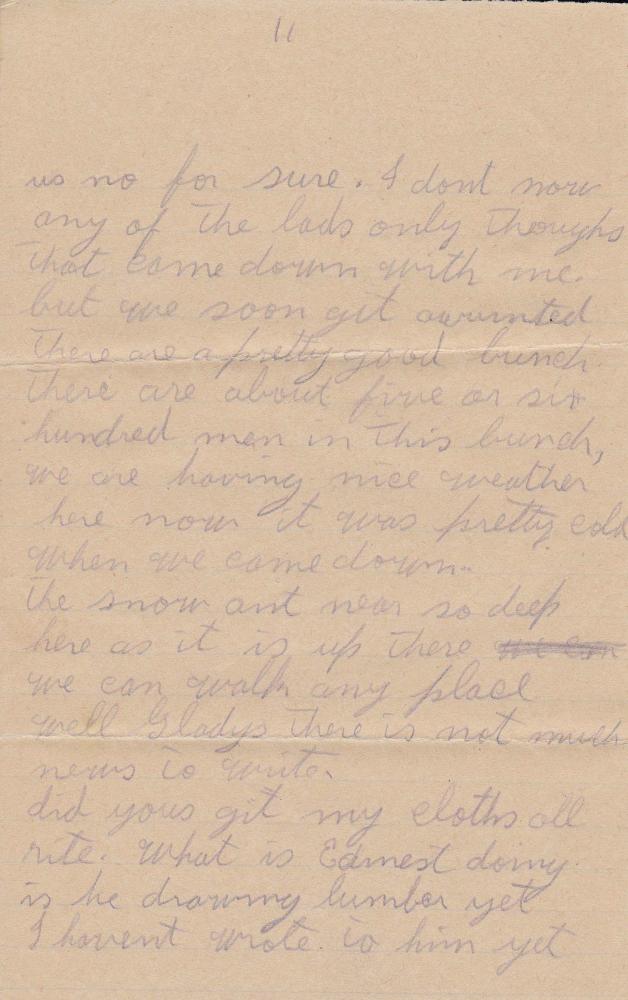 11
us no for sure. I dont now
any of the lads only thoughs
that came down with me.
but we soon git
there are a pretty good bunch.
there are about five or six
hundred men in this bunch,
we are having nice weather
here now it was pretty cold
when we came down.
the snow ant near so deep
here as it is up there
we can walk any place
well Gladys there is not much
news to write.
did yous git my cloths all
rite. What is Earnest doing
is he drawing lumber yet
I havent wrote to him yet